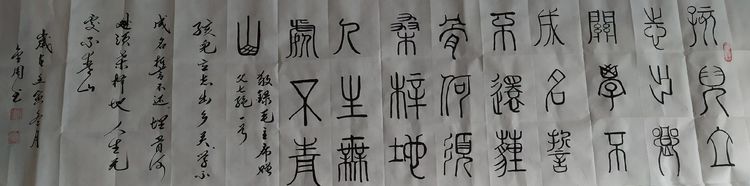 孩兒立
志出鄉
關學不
成名誓
不還薶
骨何須
桑梓地
人生無
處不青
山
敬錄毛主席贈
父七絕一首
孩兒立志出乡关学不
成名誓不还埋骨何
须桑梓地人生无
处不青山
歲在壬寅冬月